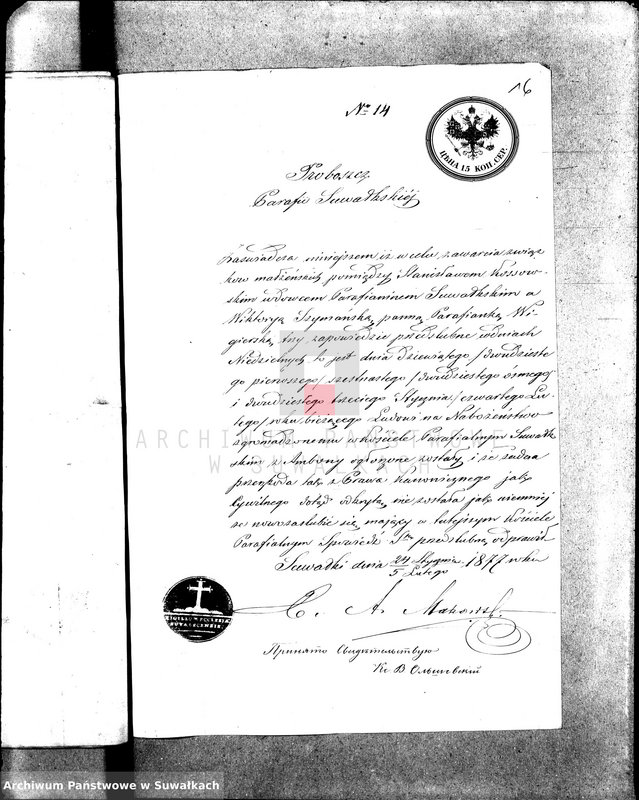 16
№ 14
ЦѢНА 15 КОП. СЕР.
Proboszcz
Parafii Suwałkskiéj
Zaświadcza niniejszem iż w celu zawarcia związ
ków małżeńskich pomiędzy Stanisławem Kossow-
skim wdowcem Parafianinem Suwałkskim a
Wiktoryą Szymańską panną Parafianką Wi-
gierską, trzy zapowiedzie przedślubne w dniach
Niedzielnych to jest dnia dziewiątego /dwudzieste
go pierwszego/ szesnastego /dwudziestego ósmego/
i dwudziestego trzeciego Stycznia /czwartego Lu-
tego/ roku bieżącego Ludowi na Nabożeństwo
zgromadzonemu w kościele Parafialnym Suwałk-
skim z Ambony ogłoszone zostały i że żadna
przeszkoda tak z Prawa kanonicznego jako
Cywilnego dotąd odkrytą nie została jako niemniej
że nowozaślubić się mający w tutejszym Kościele
Parafialnym Spowiedź Stą przedślubną odprawili
Suwałki dnia 24 Stycznia / 5 Lutego 1877 roku
A. Makowsk
SIGILLUM ECCLESIA
SUVALCENSIS
Принято Свидѣтельствую
Кс В Ольшевскій
ARCHIWUM PAŃSTWOWE
W SUWAŁKACH
Archiwum Państwowe w Suwałkach